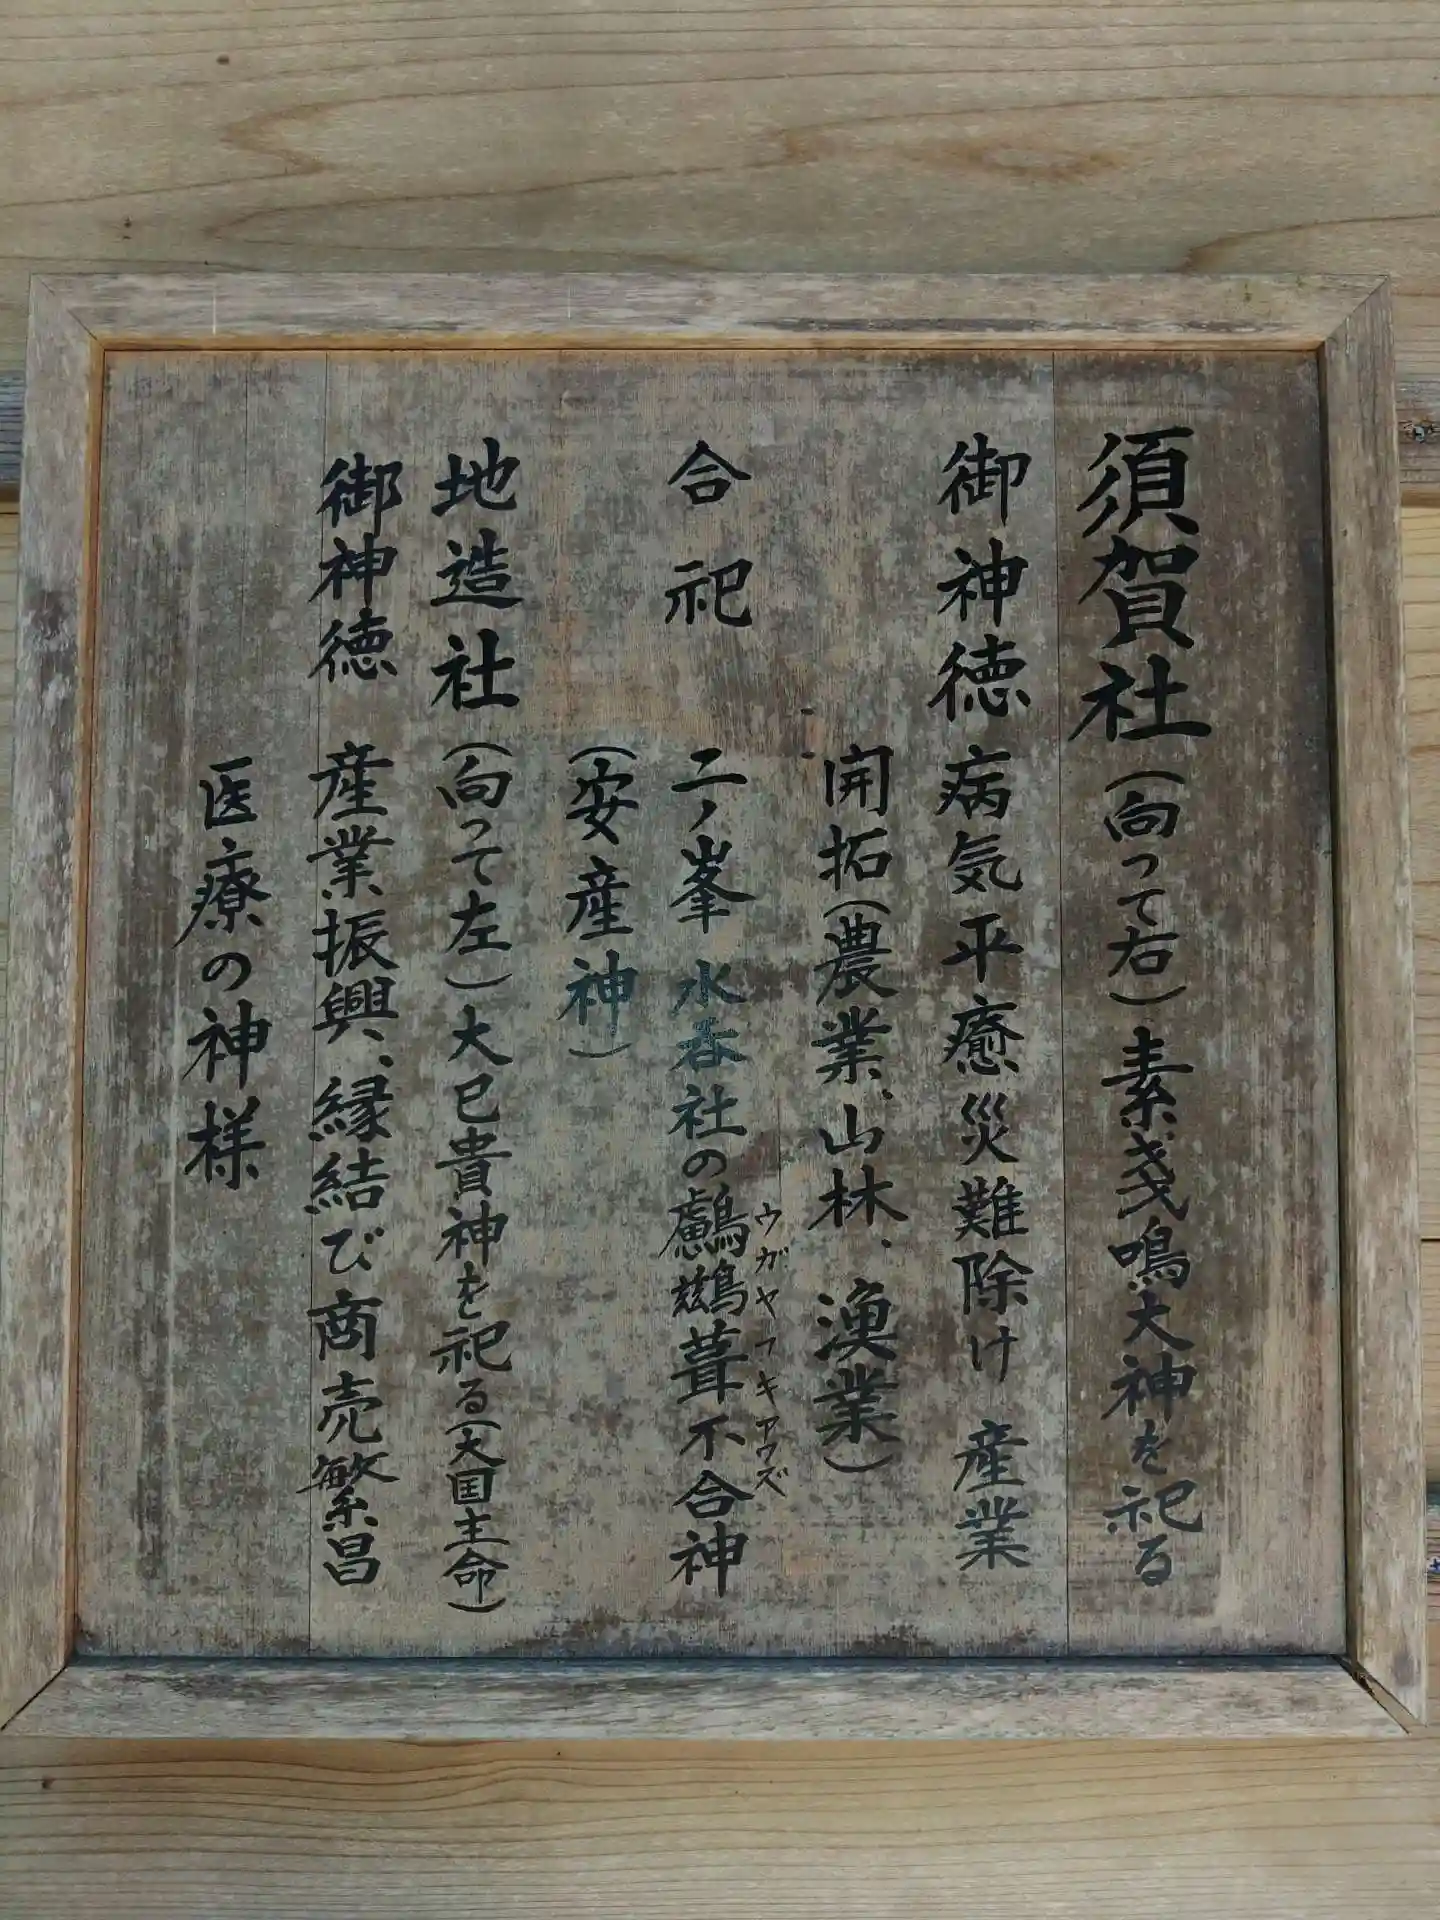 須賀社(向って右)素戔鳴大神を祀る
御神徳 病気平癒災難除け 産業
開拓(農業、山林、漁業)
合祀 二ノ峯水呑社の鸕鷀葺不合神
ウガヤフキアワズ
(安産神)
地造社(向って左)大巳貴神を祀る(大国主命)
御神徳 産業振興、縁結び商売繁昌
医療の神様